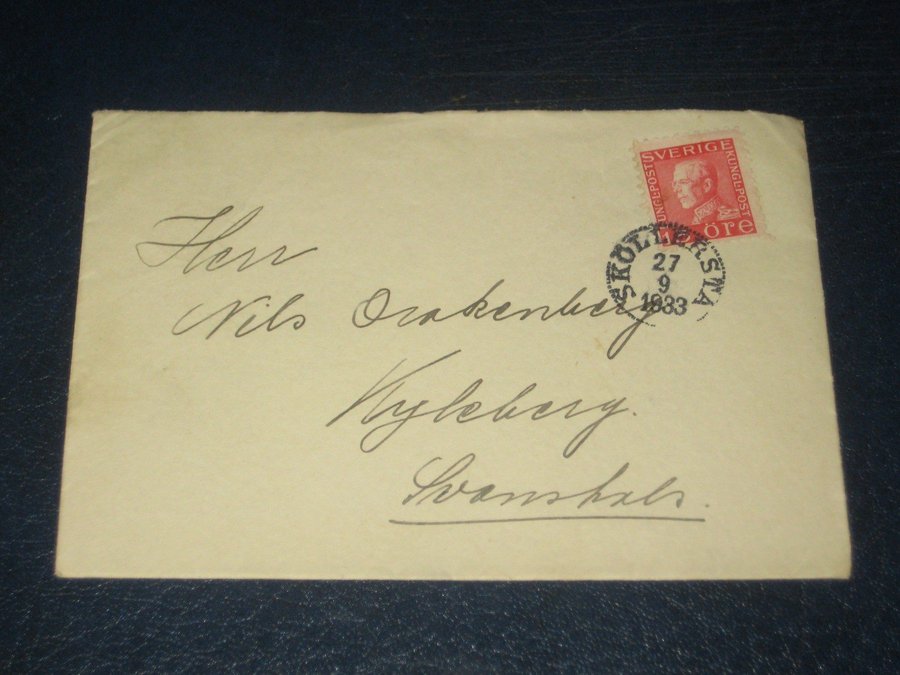 SVERIGE
KUNGL.POST
KUNGL.POST
15 öre
SKÖLLERSTA
27
9
1933
Herr
Nils Drakenberg
Kyleberg.
Svanshals.